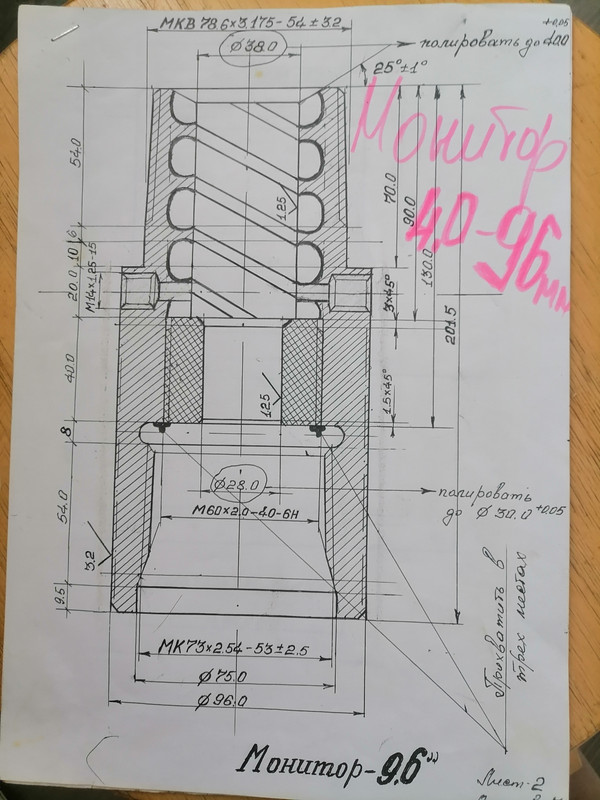 МКВ 78.6×3.175-54±3.2
Ø38.0
полировать до 40.0
+0.05
25°±1°
Монитор
4.0-96 мм
54.0
6
10
20.0
М14×1.25-15
40.0
8
54.0
9.5
3.2
1.25
1.25
70.0
90.0
130.0
201.5
3×45°
1.5×45°
Ø28.0
полировать
до Ø 30.0 +0.05
М60×2.0-40-6Н
МК73×2.54-53±2.5
Ø75.0
Ø96.0
Прихватить в
трех местах
Монитор-96"
Лист-2